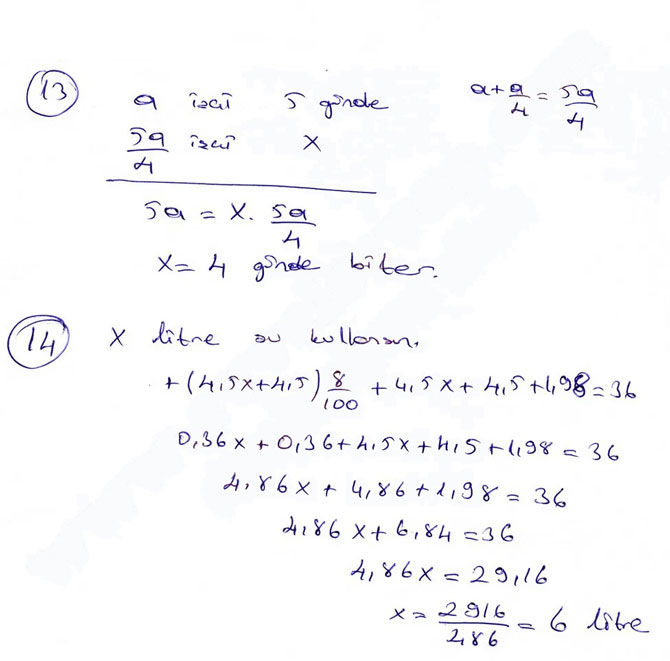 13 a işçi 5 günde a + a/4 = 5a/4
5a/4 işçi x
5a = x . 5a/4
x = 4 günde biter.
14 x litre su kullansın.
+ (4,5x+4,5) 8/100 + 4,5x + 4,5 + 1,98 = 36
0,36x + 0,36 + 4,5x + 4,5 + 1,98 = 36
4,86x + 4,86 + 1,98 = 36
4,86x + 6,84 = 36
4,86x = 29,16
x = 2916/486 = 6 litre